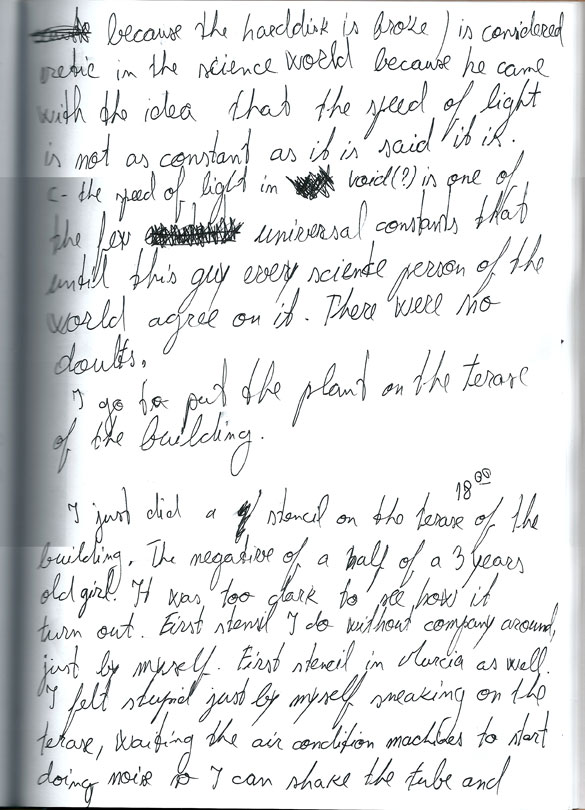 because the harddisk is broke) is considered
in the science world because he came
with the idea that the speed of light
is not as constant as it is said it is.
c- the speed of light in void(?) is one of
the few universal constants that
until this guy every science person of the
world agree on it. There were no
doubts.
I go to put the plant on the terase
of the building.
18⁰⁰
I just did a stencil on the terase of the
building. The negative of a half of a 3 years
old girl. It was too dark to see how it
turn out. First stensil I do without company around,
just by myself. First stencil in Murcia as well.
I felt stupid just by myself sneaking on the
terase, waiting the air condition machines to start
doing noise so I can shake the tube and